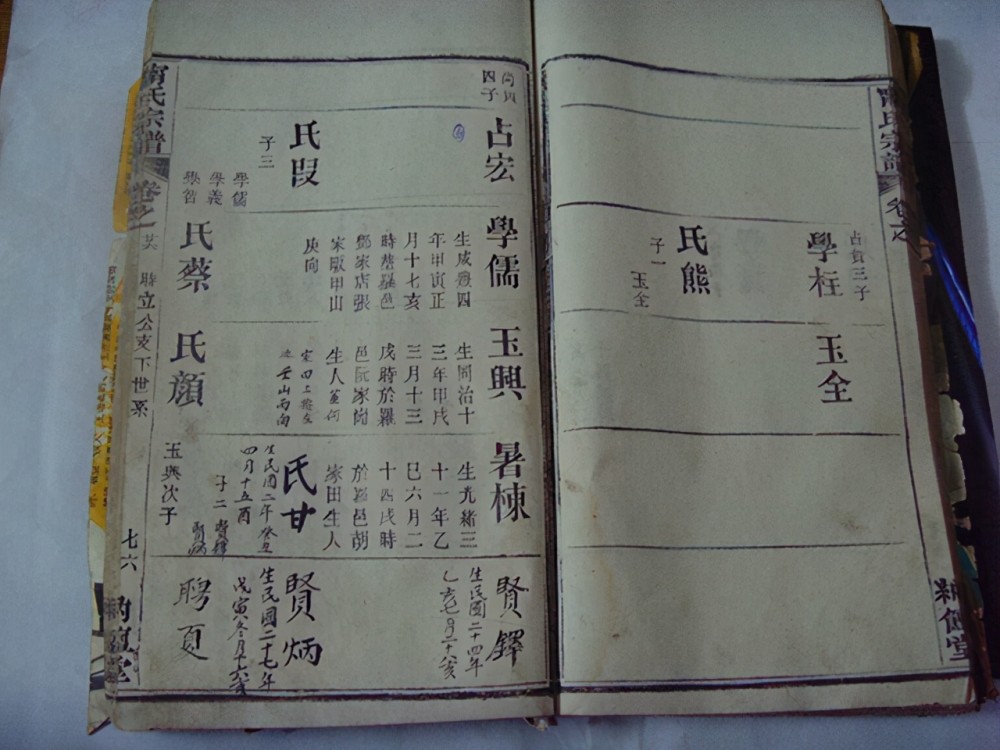 氏宗譜
卷之
占貴三子
學柱
氏熊
子一
玉全
玉全
堂
尚質
四子
占宏
氏段
子三
學儒
學義
學智
學儒
生咸豐四
年甲寅正
月十七亥
時歿羅邑
鄧家店張
家畈甲山
庚向
氏蔡
玉興
生同治十
三年甲戌
三月十三
戌時於羅
邑阮家岗
生人
氏顔
暑棟
生光緒三
十一年乙
巳六月二
十四戌時
於羅邑胡
家田生人
氏甘
生民國二年癸丑
四月十五酉
子二
賢鐸
賢炳
玉興次子
賢鐸
生民國二十四年
乙亥七月二十八亥
賢炳
生民國二十七年
戊寅叁月十六亥
聘夏
氏宗譜
卷之
聯立公支下世系
七六
堂